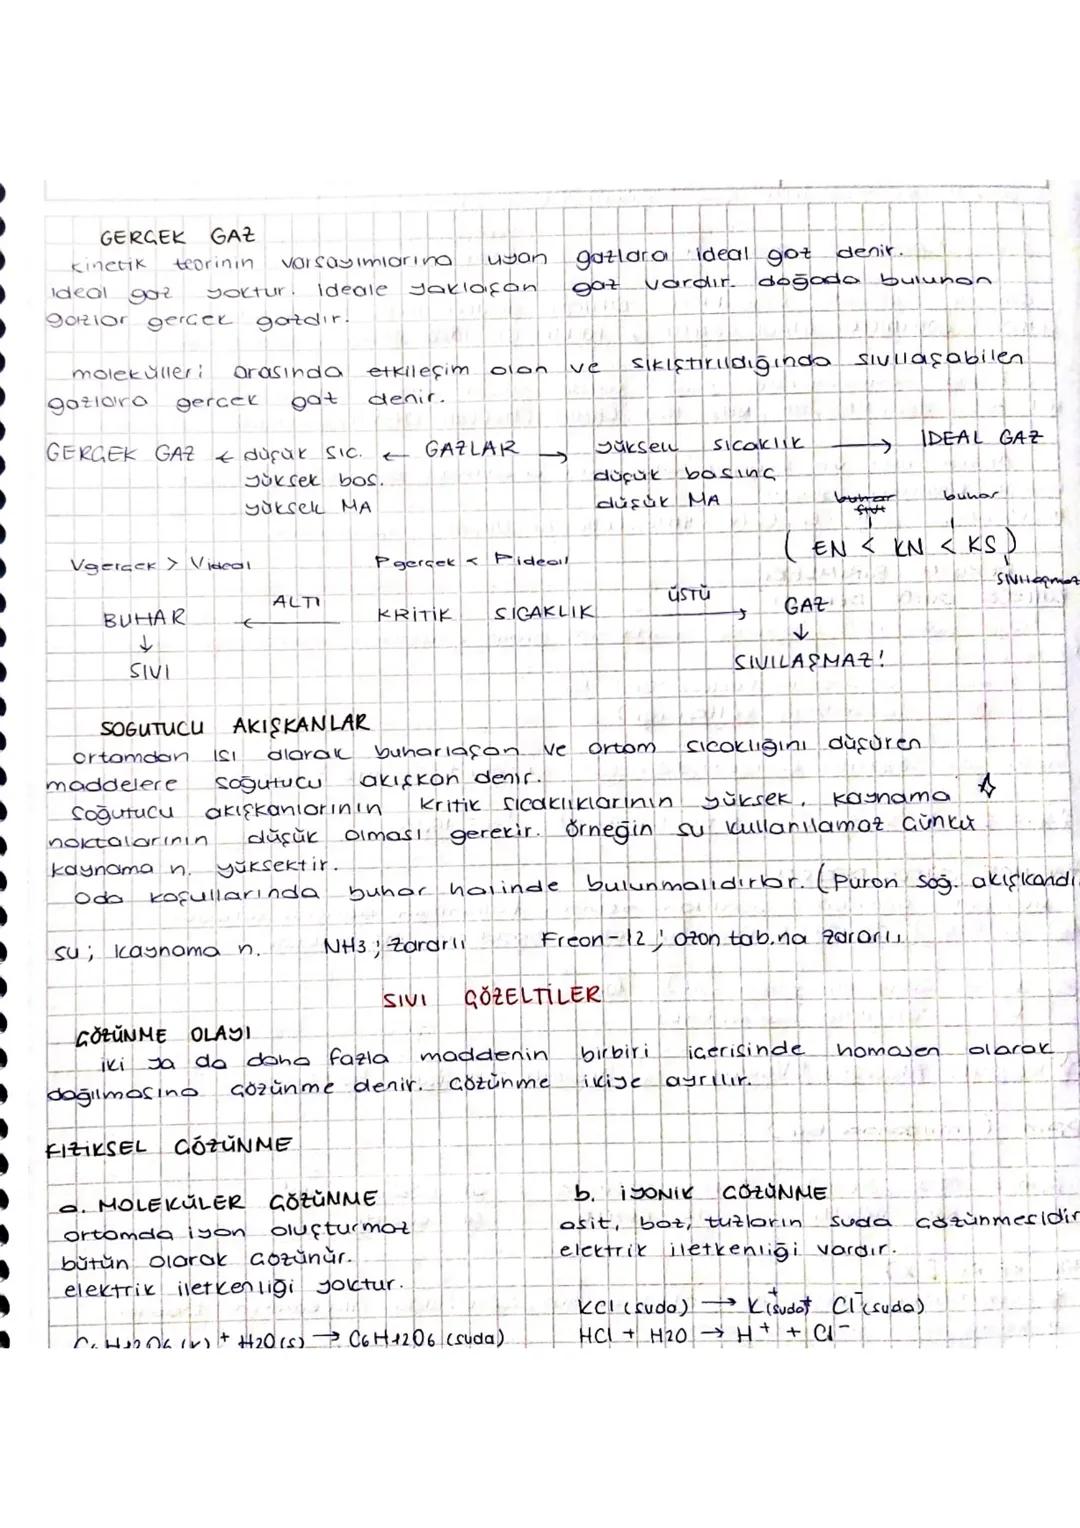 GERÇEK GAZ
kinetik teorinin varsayımlarına uyan gazlara ideal gaz denir.
ideal gaz yoktur. ideale yaklaşan gaz vardır. doğada bulunan
gazlar gerçek gazdır.
molekülleri arasında etkileşim olan ve sıkıştırıldığında sıvılaşabilen
gazlara gerçek gaz denir.
GERÇEK GAZ ← düşük sıc. ← GAZLAR → yüksek sıcaklık → İDEAL GAZ
yüksek bas. düşük basınç
yüksek MA düşük MA
buhar
(EN < KN < KS)
Vgerçek > Videal Pgerçek < Pideal
sıvılaşmaz
BUHAR ← ALTI KRİTİK SICAKLIK ÜSTÜ → GAZ
↓ ↓
SIVI SIVILAŞMAZ!
SOĞUTUCU AKIŞKANLAR
ortamdan ısı alarak buharlaşan ve ortam sıcaklığını düşüren
maddelere soğutucu akışkan denir.
Soğutucu akışkanlarının kritik sıcaklıklarının yüksek, kaynama
noktalarının düşük olması gerekir. Örneğin su kullanılamaz çünkü
kaynama n. yüksektir.
Oda koşullarında buhar halinde bulunmalıdırlar. (Puron soğ. akışkandı.
su; kaynama n. NH3; zararlı Freon-12; ozon tab.na zararlı
SIVI ÇÖZELTİLER
ÇÖZÜNME OLAYI
iki ya da daha fazla maddenin birbiri içerisinde homojen olarak
dağılmasına çözünme denir. Çözünme ikiye ayrılır.
FİZİKSEL ÇÖZÜNME
a. MOLEKÜLER ÇÖZÜNME
ortamda iyon oluşturmaz
bütün olarak çözünür.
elektrik iletkenliği yoktur.
C6H12O6 (k) + H2O(s) → C6H12O6 (suda)
b. İYONİK ÇÖZÜNME
asit, baz, tuzların suda çözünmesidir
elektrik iletkenliği vardır.
KCl (suda) → K+(suda)+ Cl-(suda)
HCl + H2O → H+ + Cl-